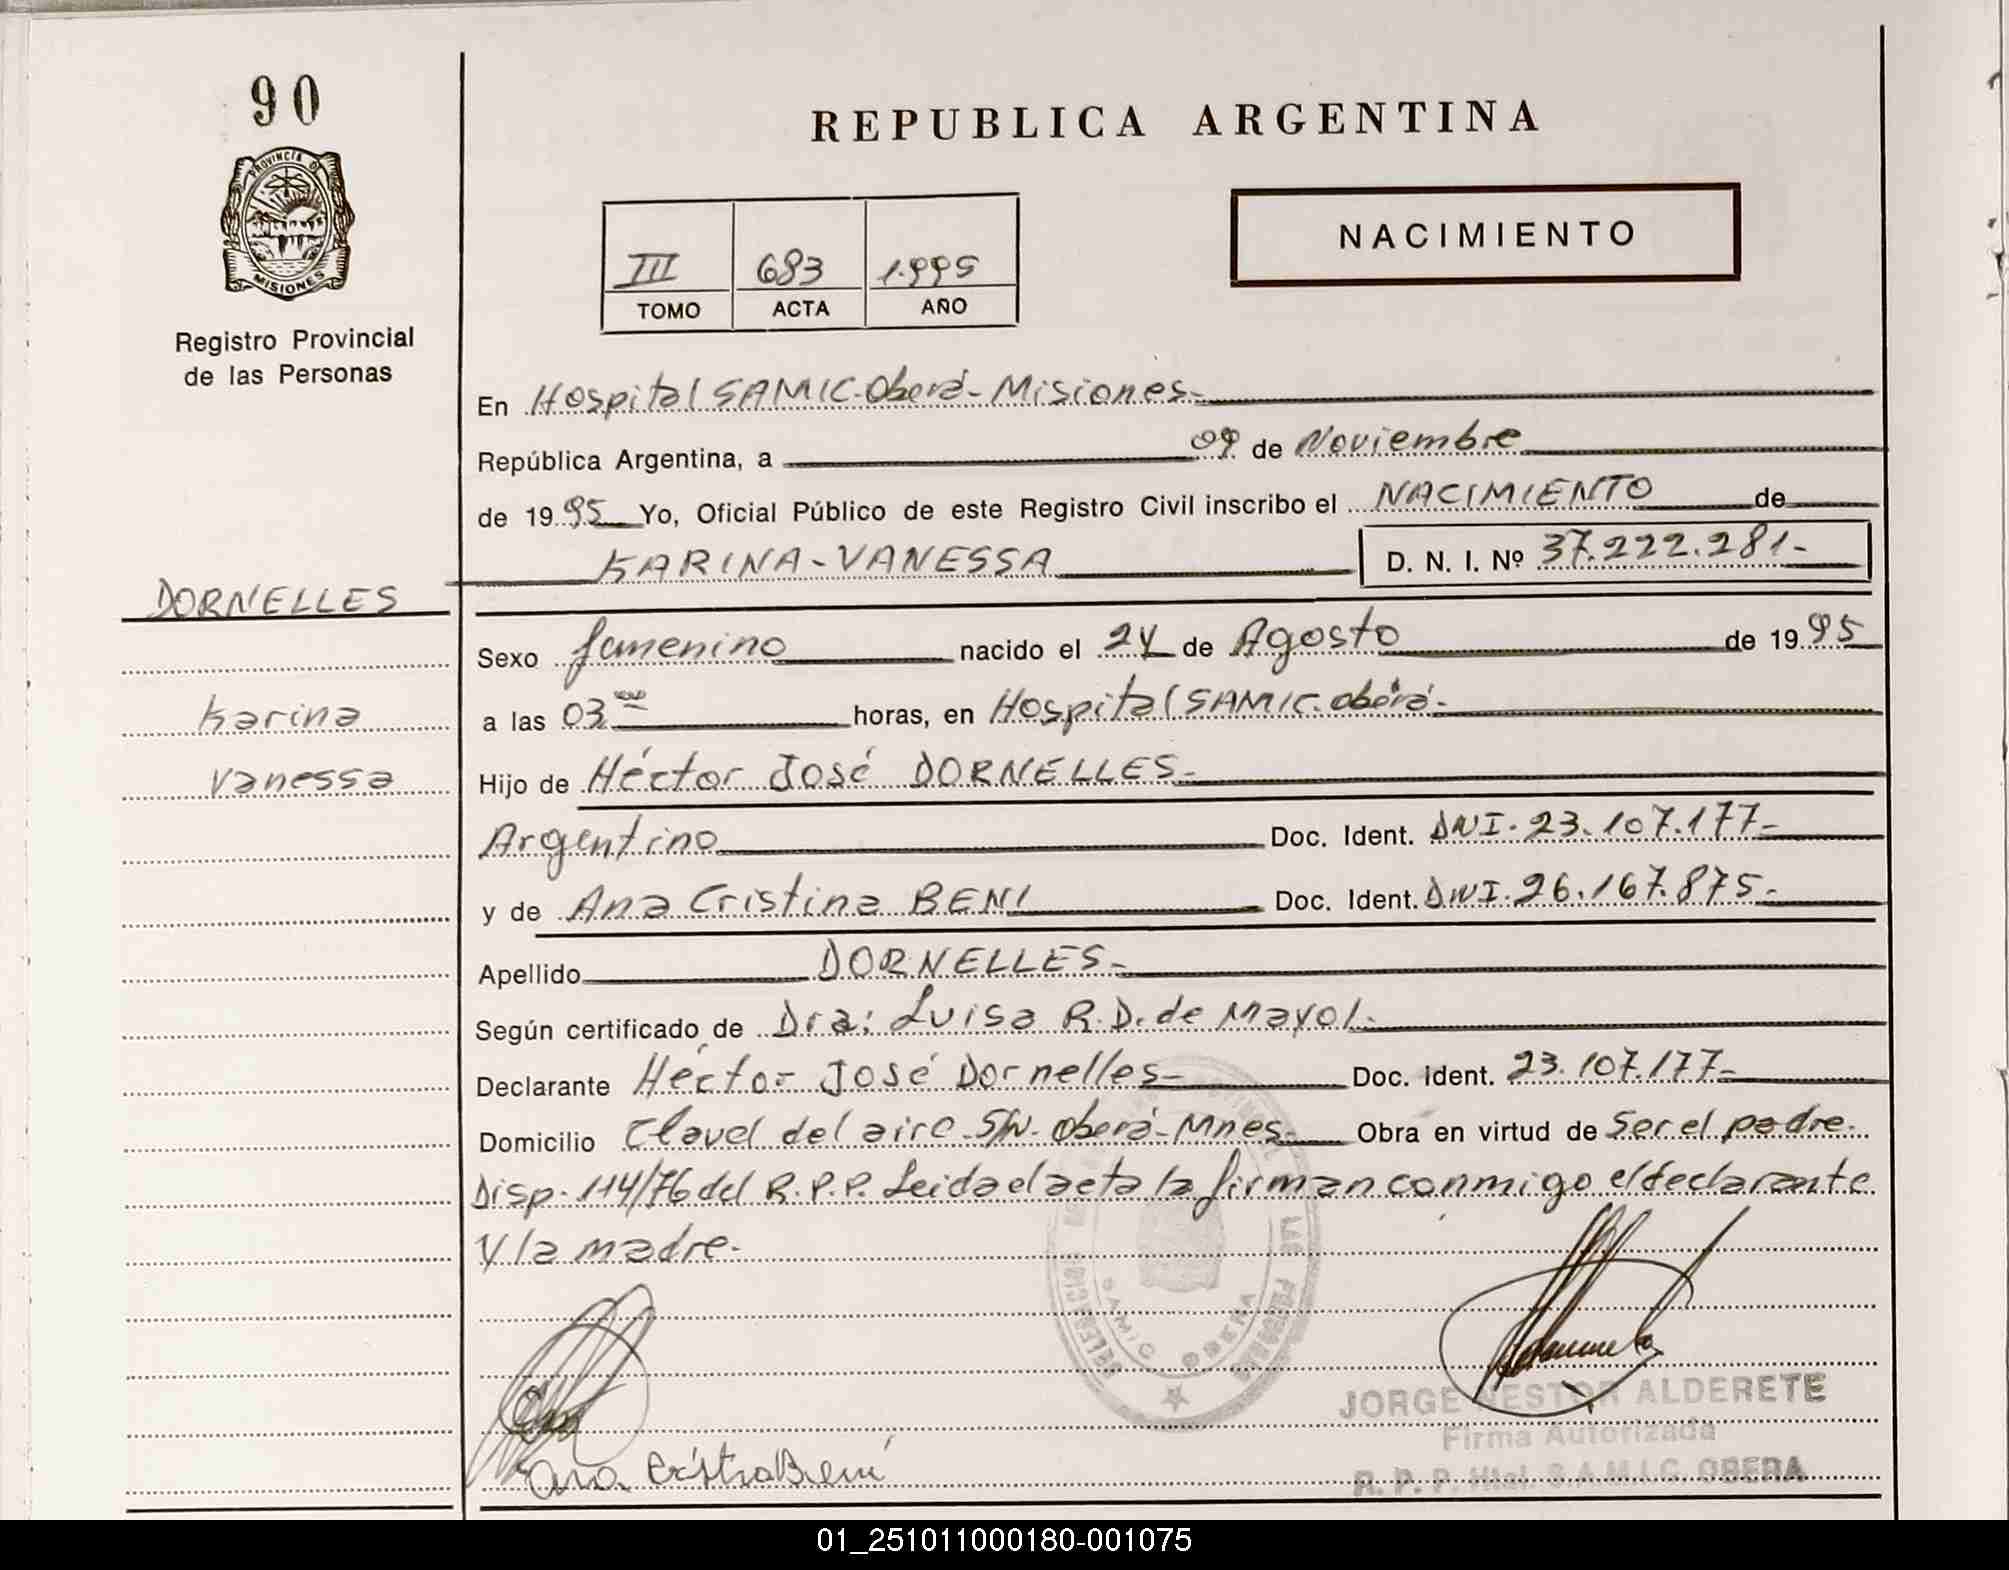 90
REPUBLICA ARGENTINA
PROVINCIA D
MISIONES
Registro Provincial
de las Personas
III 683 1.995
TOMO ACTA AÑO
NACIMIENTO
En Hospital SAMIC-Oberá-Misiones-
República Argentina, a 09 de Noviembre
de 1995 Yo, Oficial Público de este Registro Civil inscribo el NACIMIENTO de
KARINA-VANESSA D. N. I. Nº 37.222.281-
DORNELLES
Karina
Vanessa
Sexo femenino nacido el 24 de Agosto de 1995
a las 03 horas, en Hospital SAMIC-Oberá-
Hijo de Héctor José DORNELLES-
Argentino Doc. Ident. DNI-23.107.177-
y de Ana Cristina BENI Doc. Ident. DNI-26.167.875-
Apellido DORNELLES-
Según certificado de Dra: Luisa R.D. de Mayol-
Declarante Héctor José Dornelles- Doc. Ident. 23.107.177-
Domicilio Clavel del aire-S/N-Oberá-Mnes- Obra en virtud de Ser el padre-
Disp. 114/76 del R.P.P. Leida el acta la firman conmigo el declarante
y la madre-
LAS PERSONAS
SAMIC OBERA
JORGE NESTOR ALDERETE
Firma Autorizada
R. P. P. Htal. S.A.M.I.C. OBERA
01_251011000180-001075